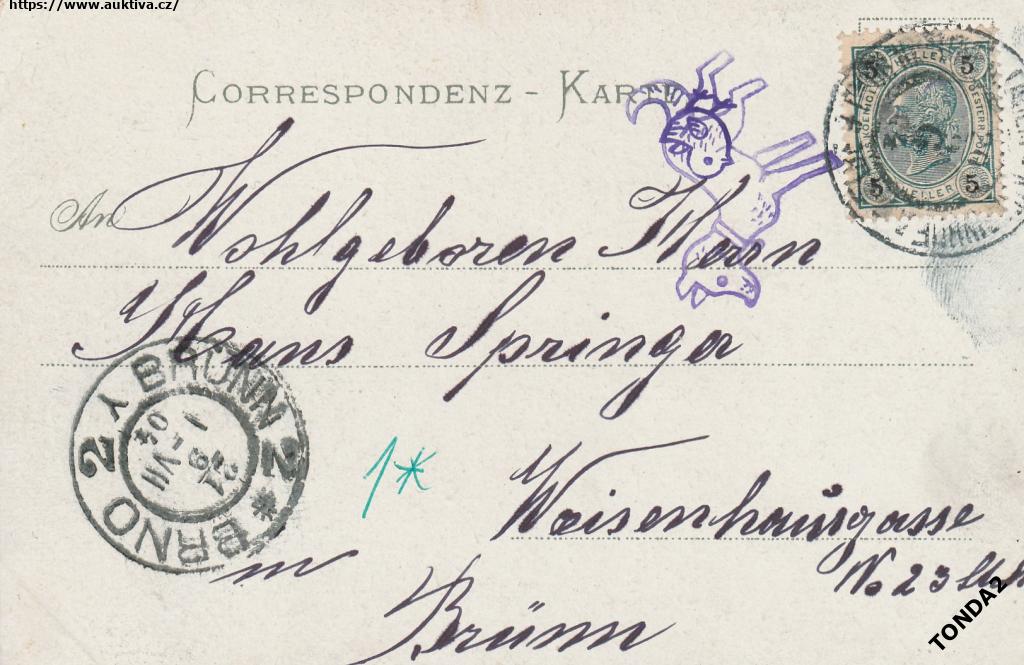 https://www.auktiva.cz/
CORRESPONDENZ - KARTE
An Wohlgeboren Herrn
Hans Springer
Waisenhausgasse
No 23
in Brünn
BRÜNN 2
BRNO 2
5 5
HELLER
5 5
1*
TONDA2